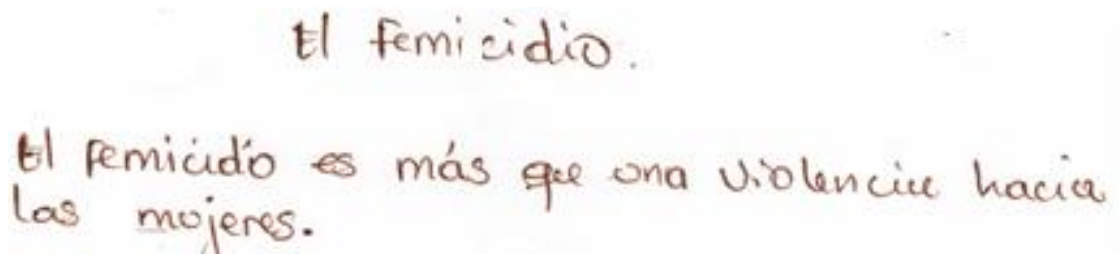 El femicidio.
El femicidio es más que una violencia hacia
las mujeres.